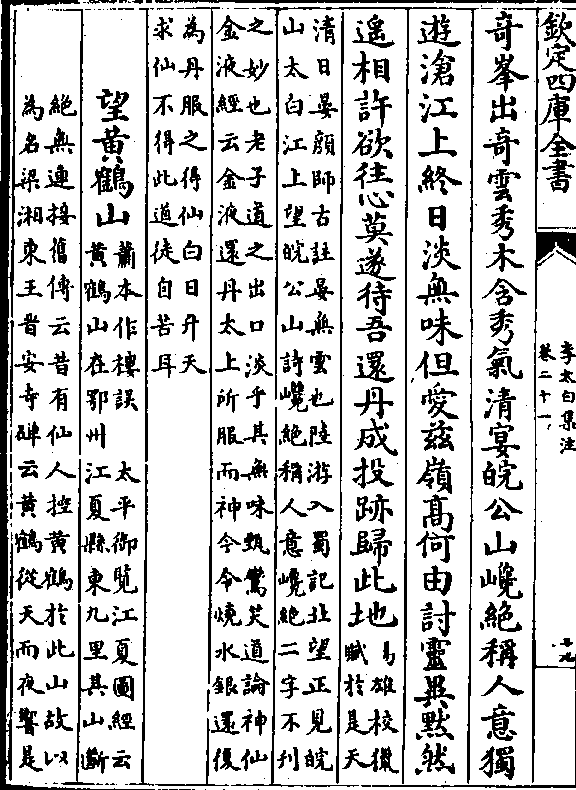 欽定四庫全書
李太白集注
卷二十一
十九
奇峯出奇雲秀木含秀氣清宴皖公山巉絶稱人意獨
遊滄江上終日淡無味但愛兹嶺高何由討靈異黙然
遥相許欲往心莫遂待吾還丹成投跡歸此地
昜雄校獵
賦於是天
清日晏顔師古註晏無雲也陸游入蜀記北望正見皖
山太白江上望皖公山詩巉絶稱人意巉絶二字不刋
之妙也老子道之出口淡乎其無味甄鸞笑道論神仙
金液經云金液還丹太上所服而神今令燒水銀還復
為丹服之得仙白日升天
求仙不得此道徒自苦耳
望黄鶴山
蕭本作樓誤
黄鶴山在鄂州
太平御覽江夏圖經云
江夏縣東九里其山斷
絶無連接舊傳云昔有仙人控黄鶴於此山故以
為名梁湘東王晉安寺碑云黄鶴從天而夜響是